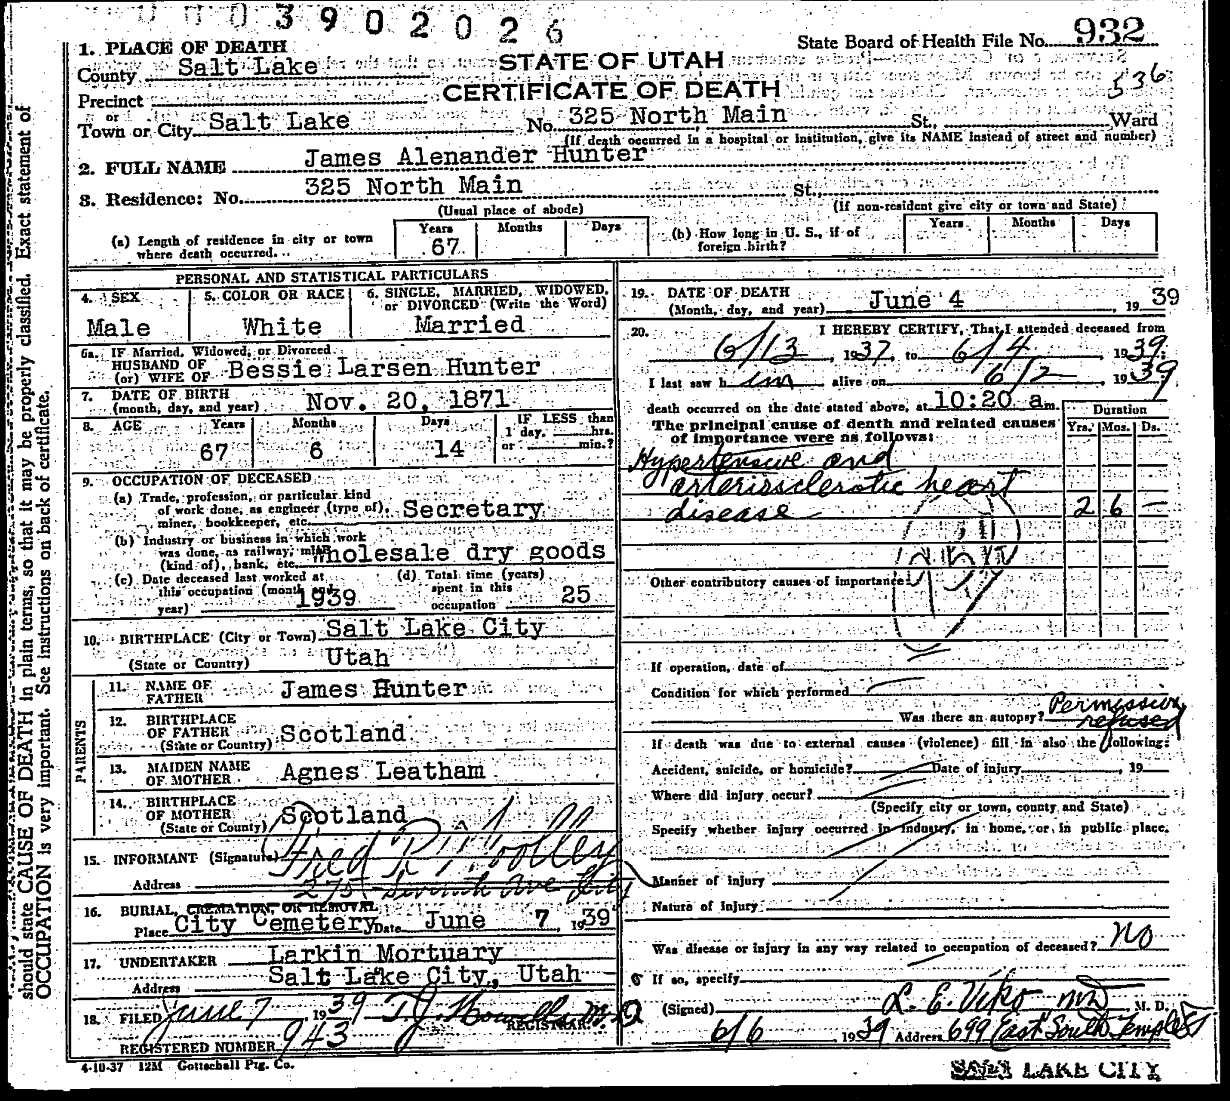 0 0 0 3 9 0 2 0 2 6
State Board of Health File No. 932
536
STATE OF UTAH
CERTIFICATE OF DEATH
1. PLACE OF DEATH
County Salt Lake
Precinct
or
Town or City Salt Lake No. 325 North Main St. Ward
(If death occurred in a hospital or institution, give its NAME instead of street and number)
2. FULL NAME James Alenander Hunter
3. Residence: No. 325 North Main St.
(Usual place of abode) (If non-resident give city or town and State)
(a) Length of residence in city or town where death occurred. Years 67 Months Days
(b) How long in U. S., if of foreign birth? Years Months Days
PERSONAL AND STATISTICAL PARTICULARS
4. SEX Male
5. COLOR OR RACE White
6. SINGLE, MARRIED, WIDOWED, or DIVORCED (Write the Word) Married
6a. IF Married, Widowed, or Divorced
HUSBAND OF
(or) WIFE OF Bessie Larsen Hunter
7. DATE OF BIRTH
(month, day, and year) Nov. 20, 1871
8. AGE Years 67 Months 6 Days 14 IF LESS than 1 day, hrs. or min.?
9. OCCUPATION OF DECEASED
(a) Trade, profession, or particular kind
of work done, as engineer (type of),
miner, bookkeeper, etc. Secretary
(b) Industry or business in which work
was done, as railway, mine
(kind of), bank, etc. Wholesale dry goods
(c) Date deceased last worked at
this occupation (month and
year) 1939
(d) Total time (years)
spent in this
occupation 25
10. BIRTHPLACE (City or Town) Salt Lake City
(State or Country) Utah
PARENTS
11. NAME OF FATHER James Hunter
12. BIRTHPLACE OF FATHER (State or Country) Scotland
13. MAIDEN NAME OF MOTHER Agnes Leatham
14. BIRTHPLACE OF MOTHER (State or Country) Scotland
15. INFORMANT (Signature) Fred R. Woolley
Address 275 - Seventh Ave City
16. BURIAL, CREMATION, OR REMOVAL
Place City Cemetery Date June 7 1939
17. UNDERTAKER Larkin Mortuary
Address Salt Lake City, Utah
18. FILED June 7 1939 T J Howells M D
REGISTRAR.
REGISTERED NUMBER 943
4-10-37 12M Gottschall Ptg. Co.
19. DATE OF DEATH
(Month, day, and year) June 4 1939
20. I HEREBY CERTIFY, That I attended deceased from
6/13, 1937, to 6/4, 1939.
I last saw him alive on 6/2, 1939
death occurred on the date stated above, at 10:20 a m.
The principal cause of death and related causes
of importance were as follows:
Duration
Yrs. Mos. Ds.
Hypertensive and
arteriosclerotic heart
disease 2 6 —
Other contributory causes of importance:
If operation, date of
Condition for which performed
Was there an autopsy? Permission refused
If death was due to external causes (violence) fill in also the following:
Accident, suicide, or homicide? Date of injury , 19
Where did injury occur?
(Specify city or town, county and State)
Specify whether injury occurred in industry, in home, or in public place.
Manner of injury
Nature of injury
Was disease or injury in any way related to occupation of deceased? No
If so, specify
(Signed) L. E. Viko md M. D.
6/6 1939 Address 699 East South Temple St
SALT LAKE CITY
should state CAUSE OF DEATH in plain terms, so that it may be properly classified. Exact statement of
OCCUPATION is very important. See instructions on back of certificate.